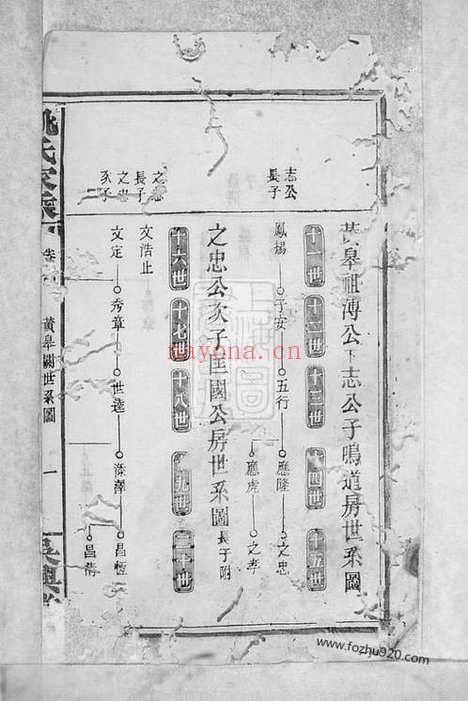 黃皋祖溥公下志公子鳴道房世系圖
十一世 十二世 十三世 十四世 十五世
志公長子
鳳楊 子安 五行 應隆 之忠
應虎 之孝
之忠公次子匡國公房世系圖 長子附
十六世 十七世 十八世 十九世 二十世
之忠長子
文浩止
之忠次子
文定 秀章 世逵 昌恆
昌
氏家乘
卷
黃皋閣世系圖
一
吳興
nayona.cn
www.fozhu920.com